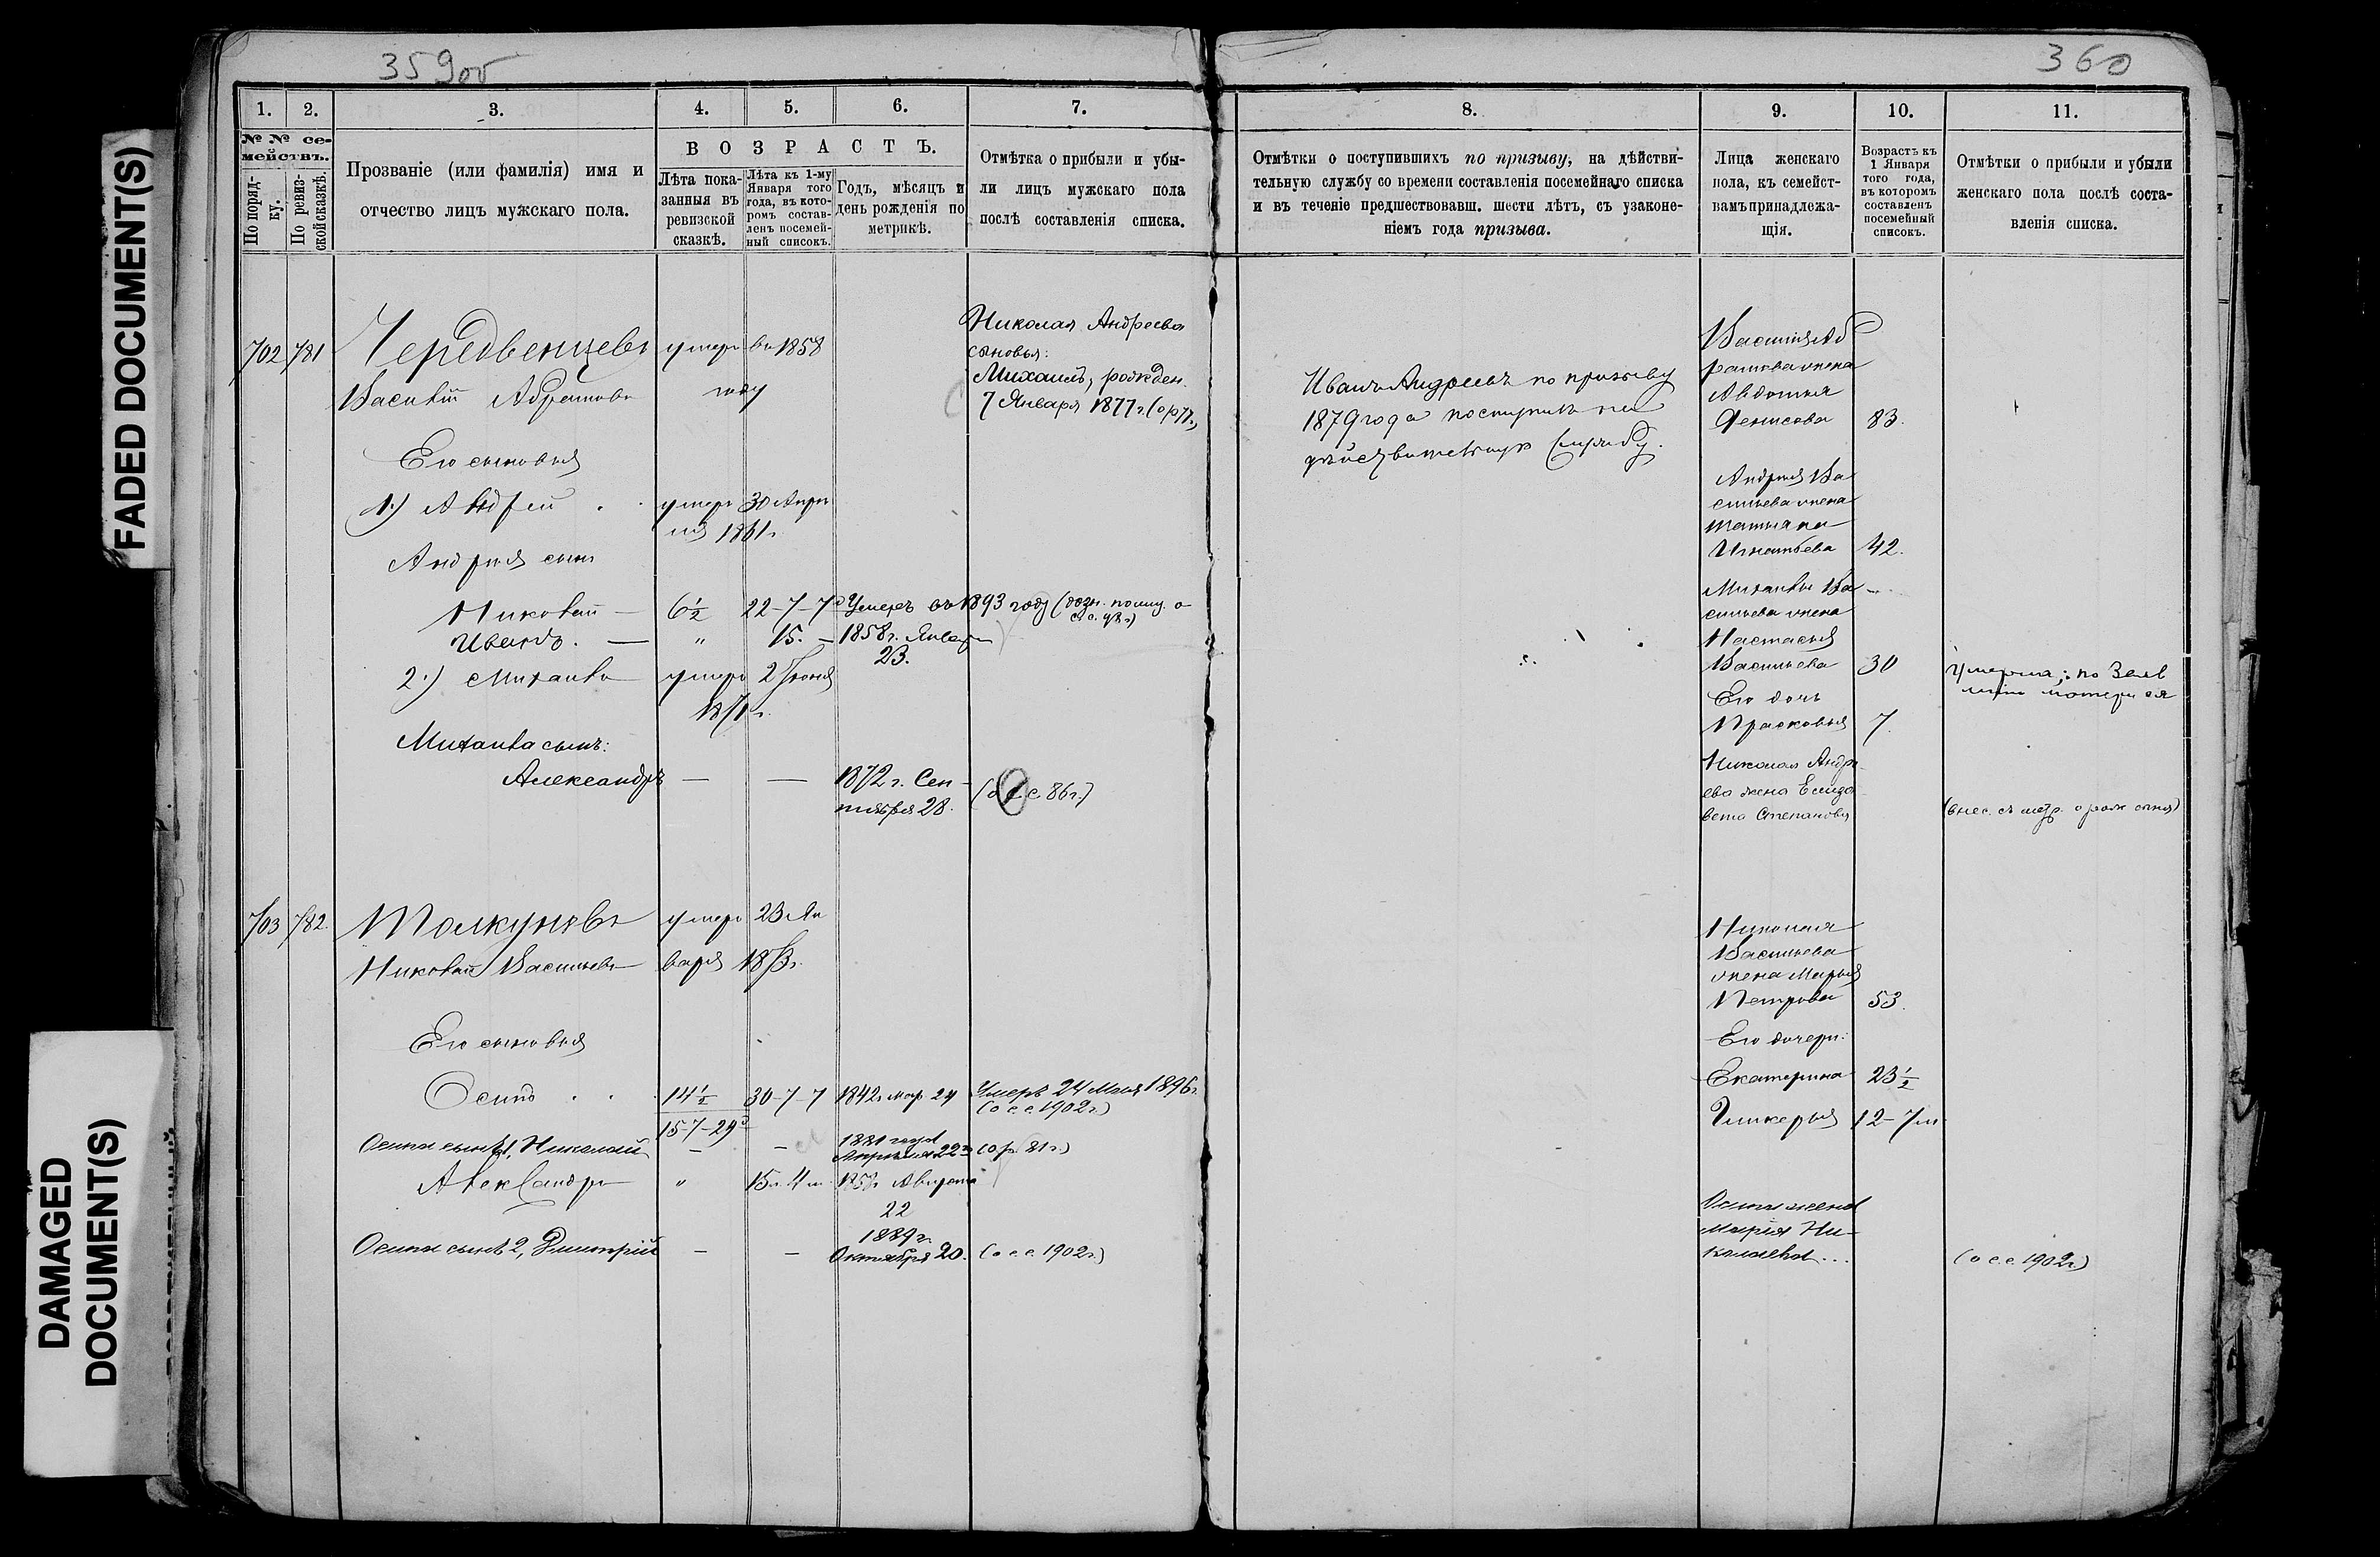 359об
360
FADED DOCUMENT(S)
DAMAGED
DOCUMENT(S)
1. 2. 3. 4. 5. 6. 7. 8. 9. 10. 11.
№ № се-
мействъ.
По поряд-
ку.
По ревиз-
ской сказкѣ.
Прозваніе (или фамилія) имя и
отчество лицъ мужскаго пола.
ВОЗРАСТЪ.
Лѣта пока-
занныя въ
ревизской
сказкѣ.
Лѣта къ 1-му
Января того
года, въ кото-
ромъ состав-
ленъ посемей-
ный списокъ.
Годъ, мѣсяцъ и
день рожденія по
метрикѣ.
Отмѣтка о прибыли и убы-
ли лицъ мужскаго пола
послѣ составленія списка.
Отмѣтки о поступившихъ по призыву, на дѣйстви-
тельную службу со времени составленія посемейнаго списка
и въ теченіе предшествовавш. шести лѣтъ, съ узаконе-
ніемъ года призыва.
Лица женскаго
пола, къ семейст-
вамъ принадлежа-
щія.
Возрастъ къ
1 Января
того года,
въ которомъ
составленъ
посемейный
списокъ.
Отмѣтки о прибыли и убыли
женскаго пола послѣ соста-
вленія списка.
702 781 Чередвенцевъ умеръ въ 1858
Василій Абрамовъ году
Его сыновья
1) Андрей умеръ 30 Апрѣ
ля 1861 г.
Андрея сынъ
Николай — 6½ 22-7-7 Умеръ въ 1893 году (дозн. полиц. о
с. с.
Иванъ. — " 15. — 1858 г. Января
23.
2.) Михаилъ умеръ 2 Іюня
1871 г.
Михаила сынъ:
Александръ — — 1872 г. Сен-
тября 28. (о с с 86 г.)
Николая Андреева
сыновья:
Михаилъ, рожден.
7 Января 1877 г. (о р 77 г.)
Иванъ Андреевъ по призыву
1879 года поступилъ на
дѣйствительную службу.
Василія Аб
рамова жена
Авдотья
Денисова 83.
Андрея Ва
сильева жена
Татьяна
Игнатьева 42.
Михаила Ва
сильева жена
Настасья
Васильева 30 умерла; по заяв
ленію матери ея
Его дочь
Прасковья 7.
Николая Андре
ева жена Елиза
вета Степанова (внес. съ метр. о рожд. сына)
703 782. Толкуновъ умеръ 23 Ян
Николай Васильевъ варя 1873 г.
Его сыновья
Осипъ 14½ 30-7-7 1842 г. мар. 24 Умеръ 24 Мая 1896 г.
(о с. с. 1902 г.)
15-7-29
Осипа сынъ 1, Николай — — 1881 года
Апрѣля 22 (о р. 81 г.)
Александръ " 15 л. 4 м. 1857 г. Августа
22
Осипа сынъ 2, Дмитрій — — 1889 г.
Октября 20. (о с. с. 1902 г.)
Николая
Васильева
жена Марья
Петрова 53.
Его дочери:
Екатерина 23½
Гликерья 12-7 м.
Осипа жена
Марія Ни-
колаева... (о с. с. 1902 г.)